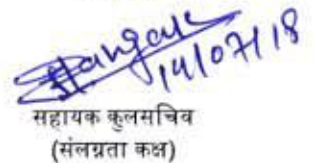 14/07/18
सहायक कुलसचिव
(संलग्नता कक्ष)